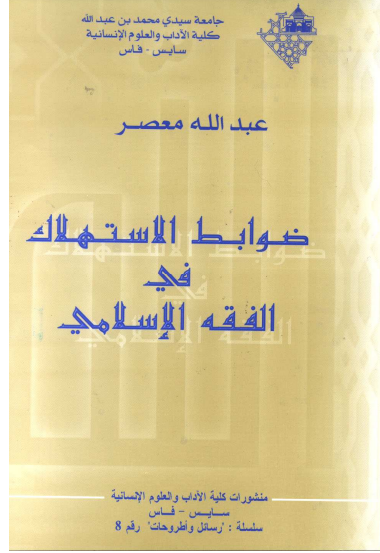 جامعة سيدي محمد بن عبد الله
كلية الآداب والعلوم الإنسانية
سايس - فاس
عبد الله معصر
ضوابط الاستهلاك
في
الفقه الإسلامي
منشورات كلية الآداب والعلوم الإنسانية
سايس - فاس
سلسلة : "رسائل وأطروحات" رقم 8